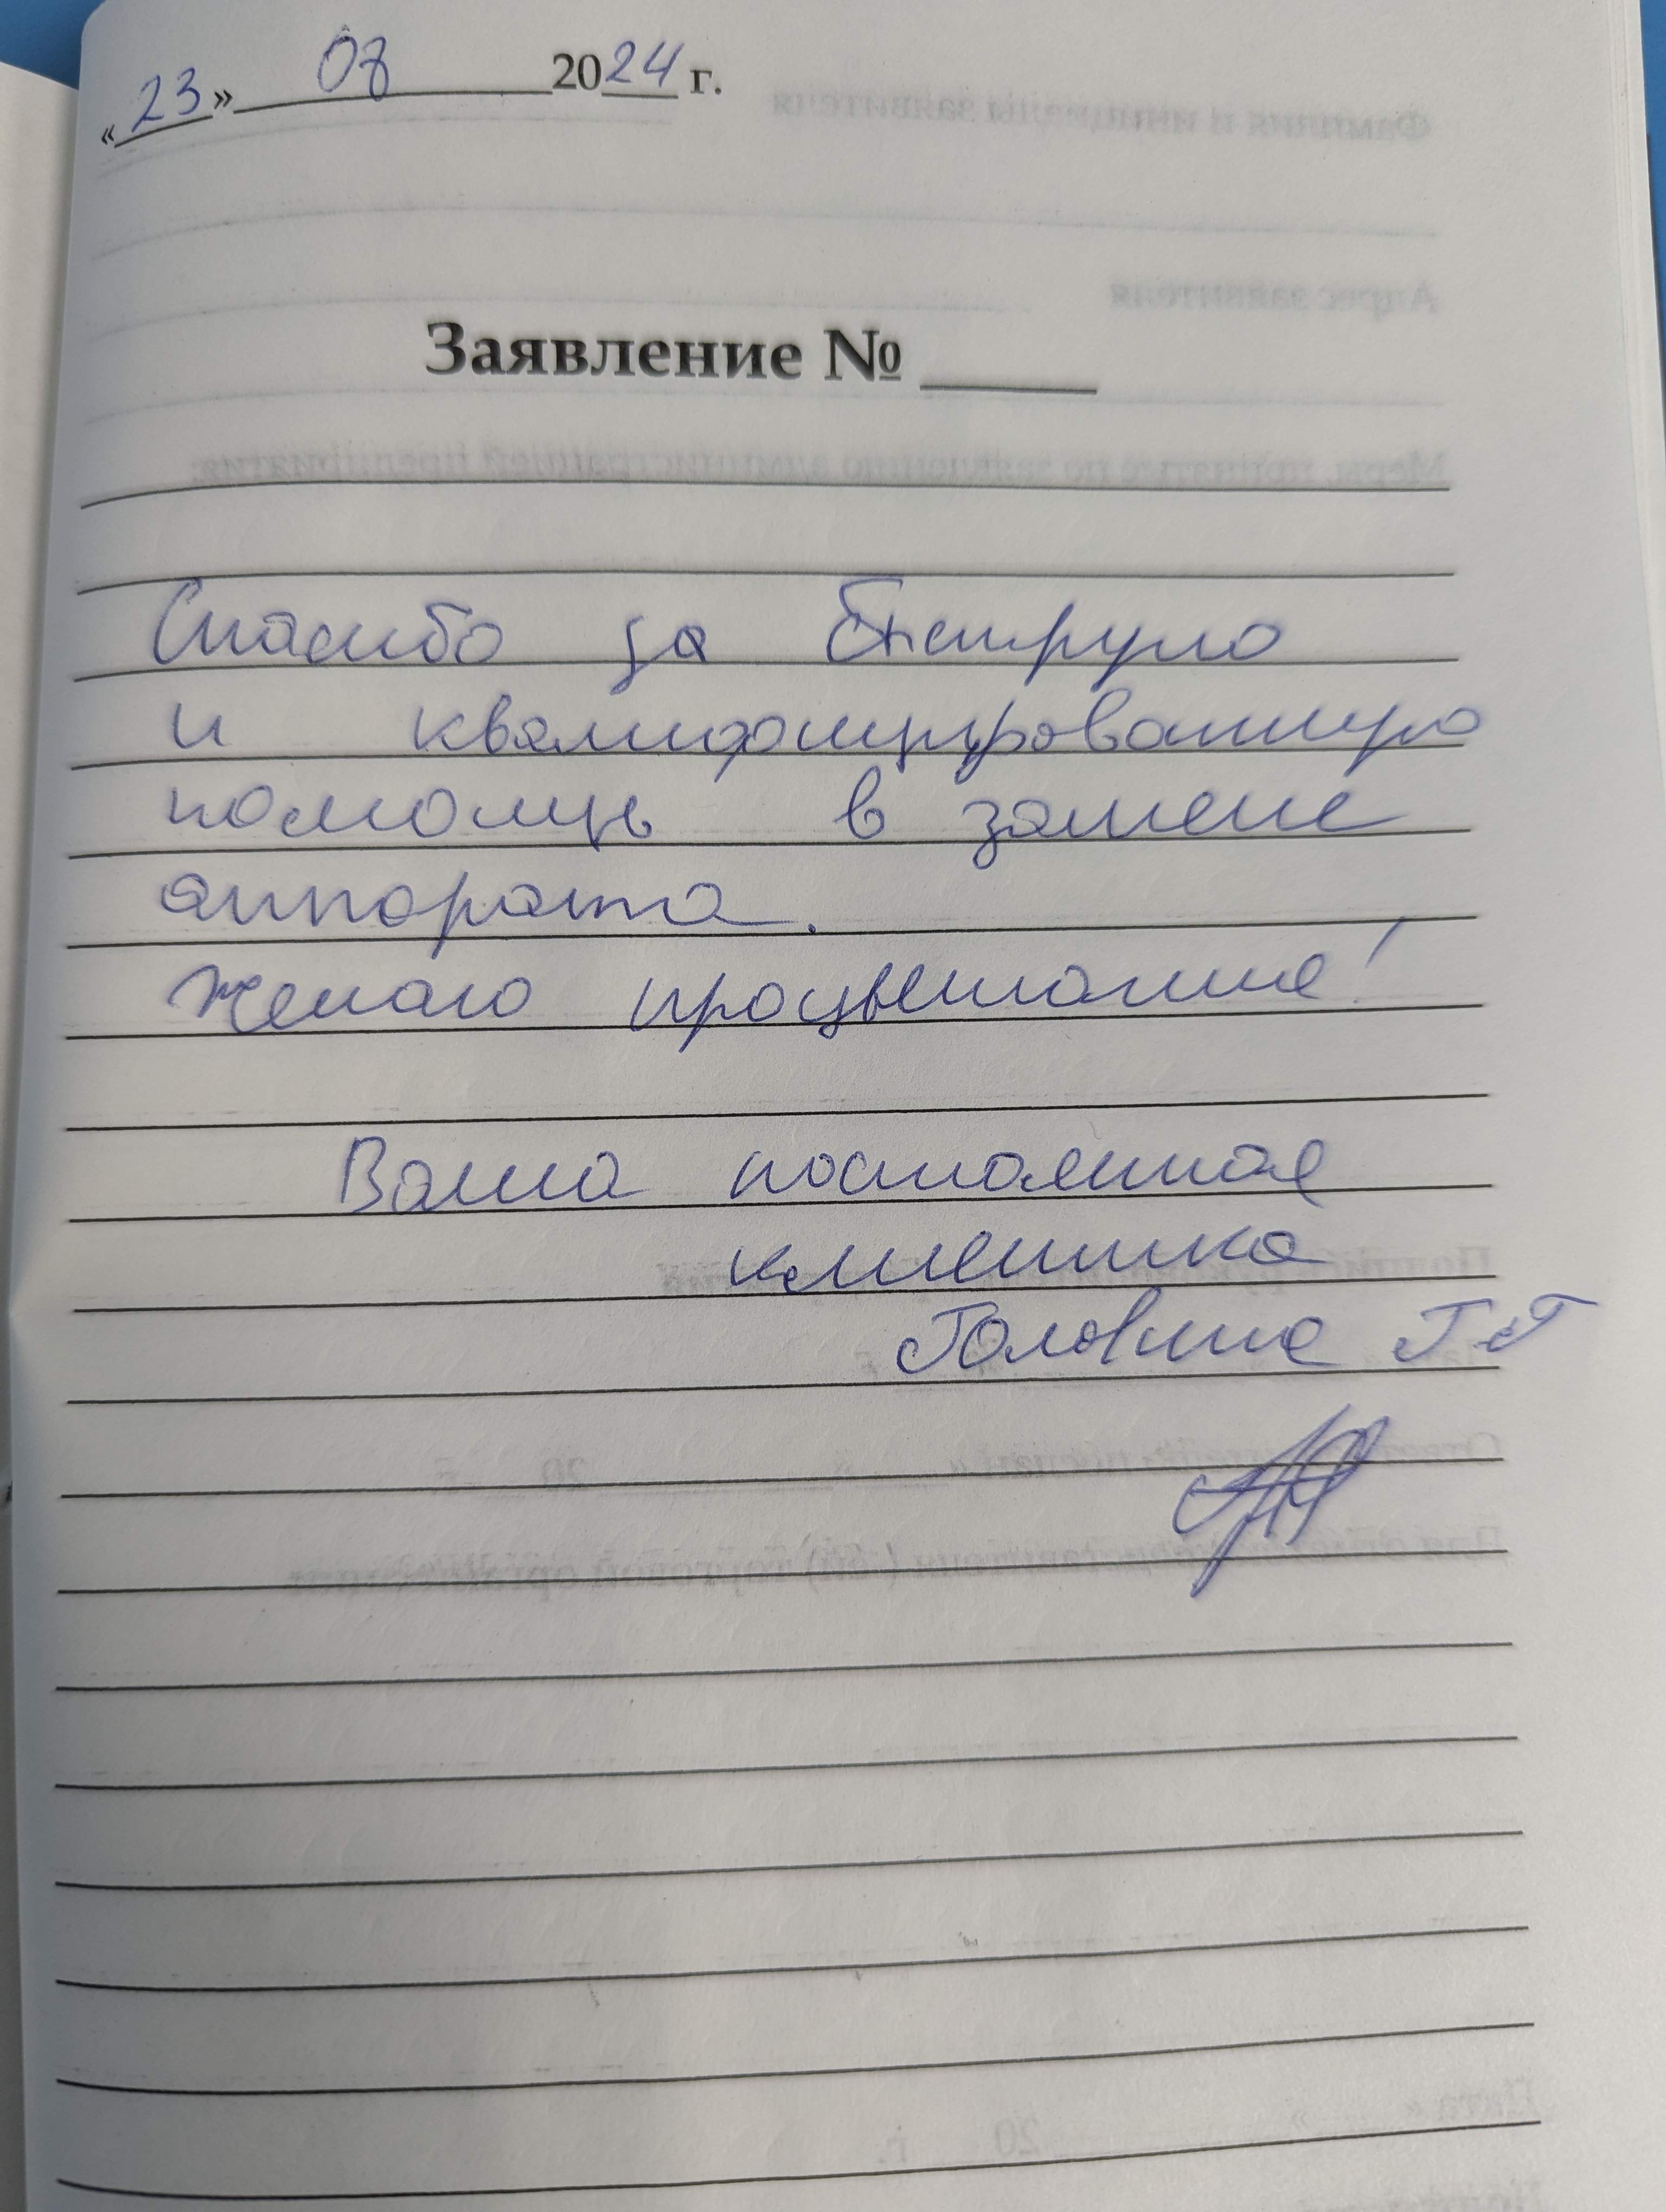 «23» 08 2024 г.
Заявление № ____
Спасибо за быструю
и квалифицированную
помощь в замене
аппарата.
Желаю процветания!
Ваша постоянная
клиентка
Головина Г.Г